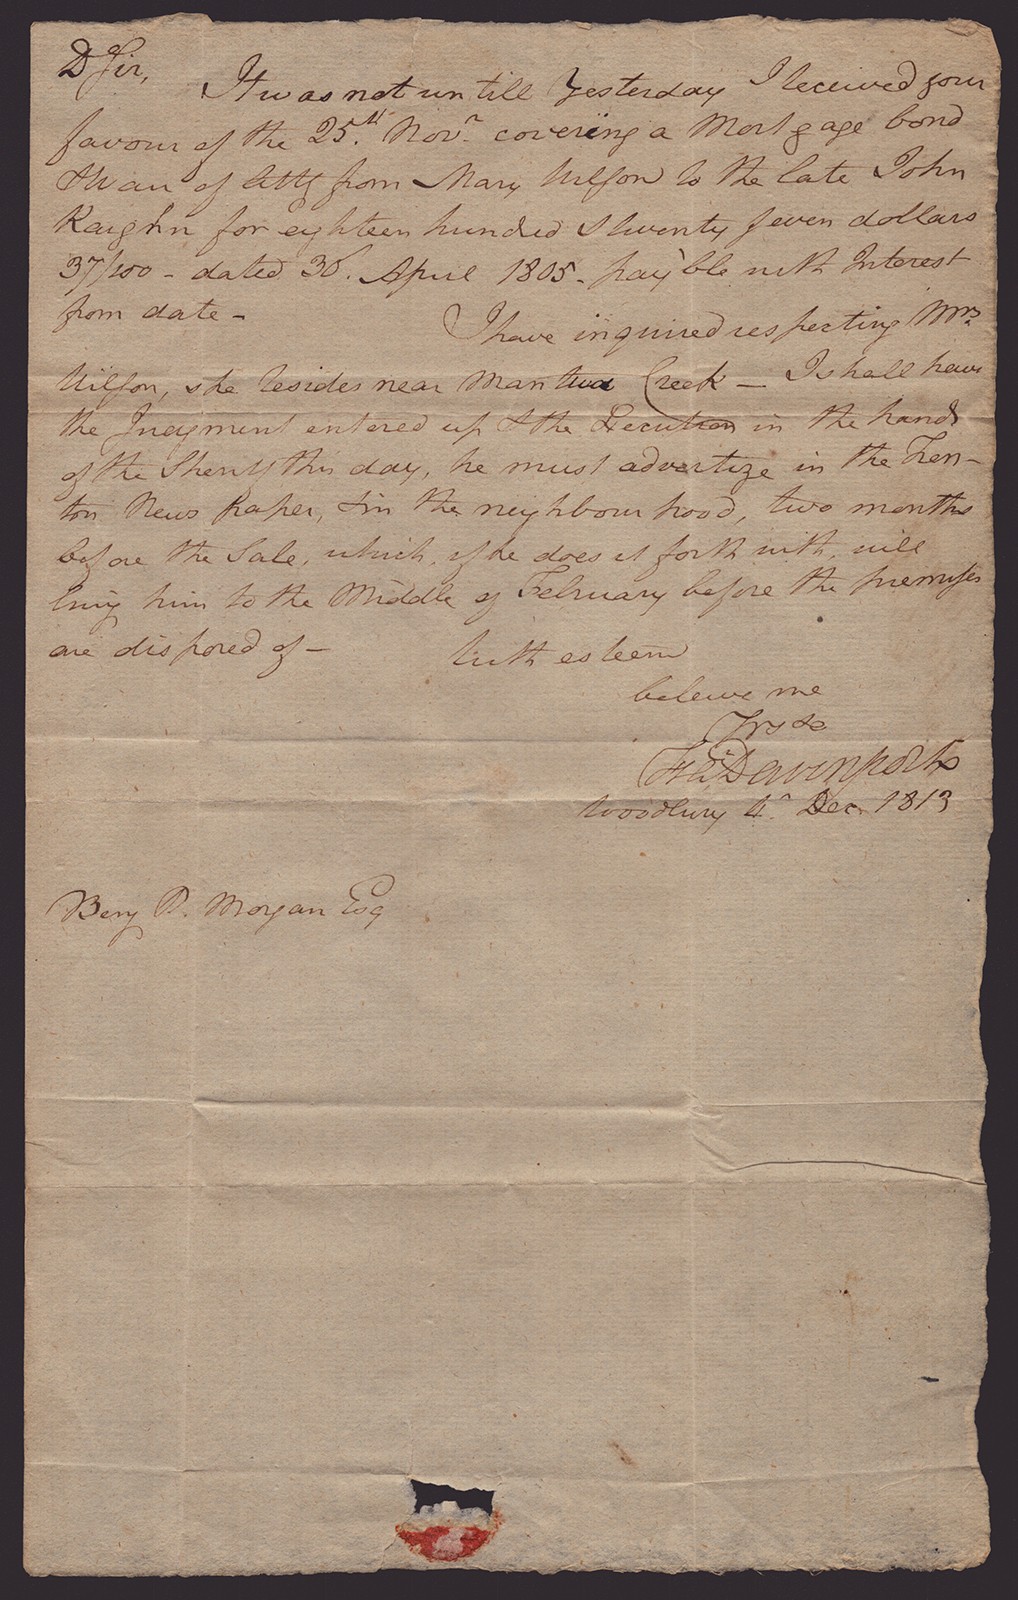 D Sir,
It was not untill Yesterday I received your
favour of the 25th. Novr. covering a Mortgage bond
& War of Atty from Mary Wilson to the late John
Vaughn for eighteen hundred & twenty seven dollars
37/100 - dated 30. April 1805 - payble with Interest
from date -
I have inquired respecting Mrs
Wilson, she resides near Mantua Creek — I shall have
the Judgment entered up & the Execution in the hands
of the Sheriff this day, he must advertize in the Tren-
ton News Paper, & in the neighbourhood, two months
before the Sale, which, if he does it forthwith, will
bring him to the Middle of February before the premises
are disposed of -
With esteem
beleive me
Yrs &c
Davenport
Woodbury 4th Dec. 1813
Benj R. Morgan Esq